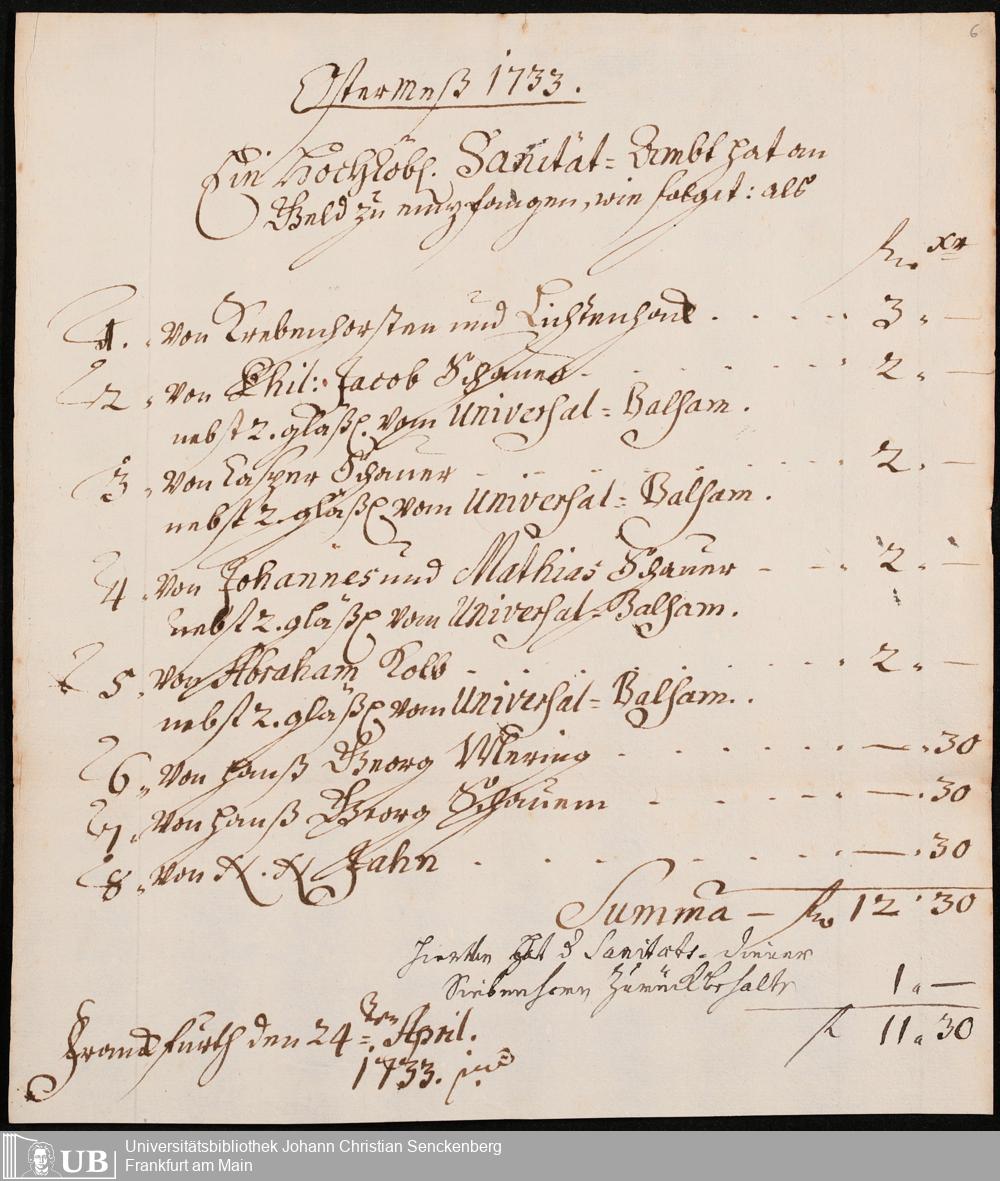 6
Ostermeß 1733.
Ein Hochlöbl. Sanität=Ambt hat an
Geld zu empfangen, wie folget: als
fl. xr
1. von Krebenhorsten und Lichtenhond . . . . . 3 „ —
2 „ von Phil: Jacob Schauer . . . . . . 2 „ —
nebst 2. gläßl. vom Universal=Balsam.
3 „ von Casper Schauer . . . . . . 2 „ —
nebst 2. gläßl. vom Universal=Balsam.
4 „ von Johannes und Mathias Schauer — — . 2 „ —
nebst 2. gläßl. vom Universal=Balsam.
5 „ von Abraham Kolb . . . . . . 2 „ —
nebst 2. gläßl. vom Universal=Balsam.
6 „ von Hanß Georg Mering . . . . . . — „ 30
7 „ von Hanß Georg Schauem . . . . . . — „ 30
8 „ von N. N. Jahn . . . . . . — „ 30
Summa — fl. 12 " 30
hat d Sanitäts-Diener
zurückbehalten 1 „ —
fl 11 „ 30
Franckfurth den 24ten April.
1733.
UB
Universitätsbibliothek Johann Christian Senckenberg
Frankfurt am Main